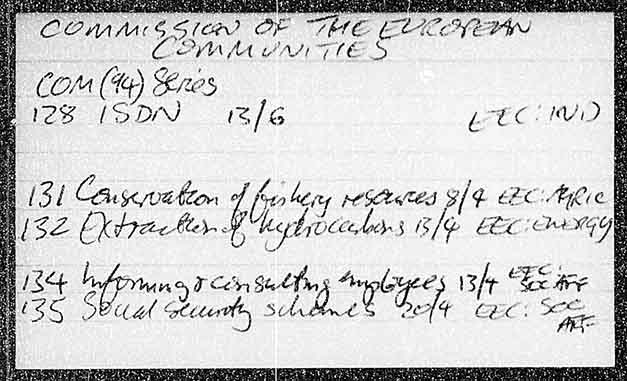 COMMISSION OF THE EUROPEAN
COMMUNITIES
COM (94) Series
128 ISDN 13/6 EEC: IND
131 Conservation of fishery resources 8/4 EEC: AGRIC
132 Extraction of hydrocarbons 13/4 EEC: ENERGY
134 Informing & consulting employees 13/4 EEC: SOC AFF
135 Social security schemes 20/4 EEC: SOC
AFF